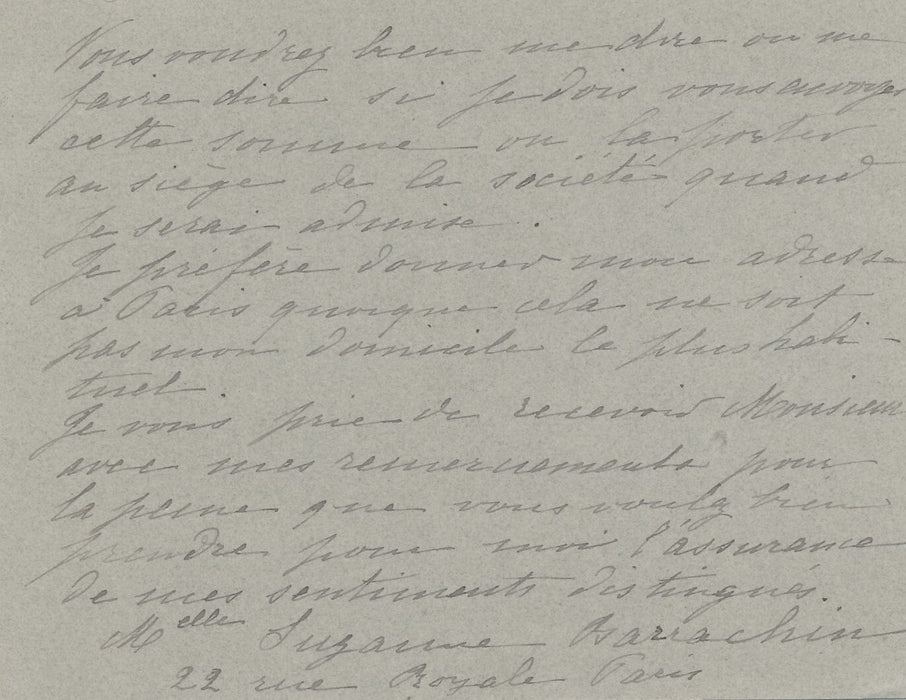 Vous voudrez bien me dire ou me
faire dire si je dois vous envoyer
cette somme ou la porter
au siège de la société quand
je serai admise.
Je préfère donner mon adresse
à Paris quoique cela ne soit
pas mon domicile le plus habi-
tuel.
Je vous prie de recevoir Monsieur
avec mes remerciements pour
la peine que vous voulez bien
prendre pour moi l'assurance
de mes sentiments distingués.
Melle Suzanne Barrachin
22 rue Royale Paris